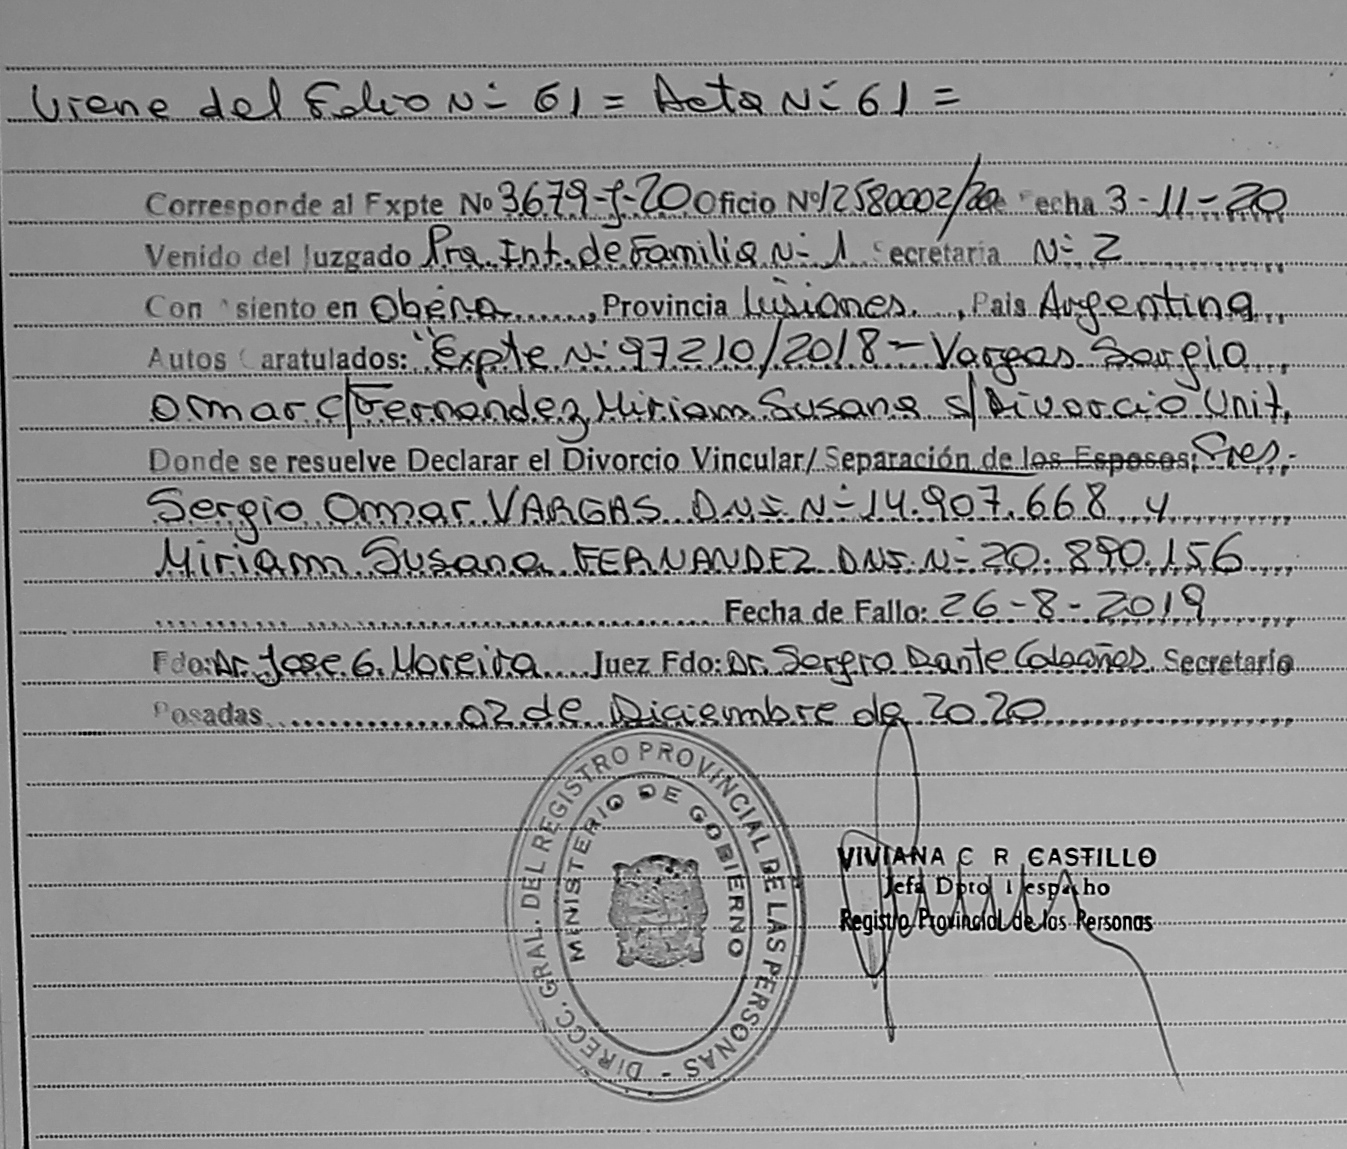 Viene del Folio Nº 61 = Acta Nº 61 =
Corresponde al Expte Nº 3679-J-20 Oficio Nº 12580002/20 de Fecha 3-11-20
Venido del Juzgado Pra. Int. de Familia Nº 1 Secretaria Nº 2
Con Asiento en Oberá, Provincia Misiones, Pais Argentina
Autos Caratulados: "Expte Nº 97210/2018 - Vargas Sergio
Omar c/ Fernandez Miriam Susana s/ Divorcio Unit.
Donde se resuelve Declarar el Divorcio Vincular/ Separación de los Esposos; Sres.
Sergio Omar VARGAS DNI Nº 14.907.668 y
Miriam Susana FERNANDEZ DNI. Nº 20.890.156
Fecha de Fallo: 26-8-2019
Fdo: Dr. Jose G. Moreira Juez Fdo: Dr. Sergio Dante Secretario
Posadas 02 de Diciembre de 2020
DIRECC. GRAL. DEL REGISTRO PROVINCIAL DE LAS PERSONAS -
MINISTERIO DE GOBIERNO
VIVIANA C R CASTILLO
Jefa Dpto Despacho
Registro Provincial de las Personas